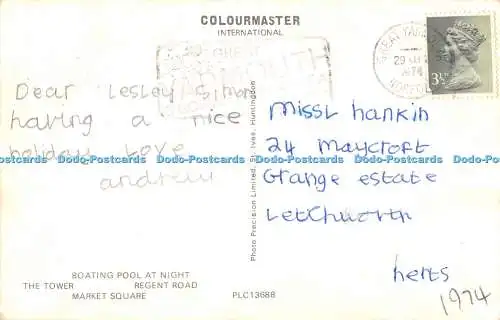 COLOURMASTER
INTERNATIONAL
GREAT
YARMOUTH
GREAT YARMOUTH
29
1974
NORFOLK
3½
Dear Lesley Simon
having a nice
holiday Love
andrew
MissL hankin
24 Maycroft
Grange estate
Letchworth
herts
1974
Photo Precision Limited, St. Ives, Huntingdon
BOATING POOL AT NIGHT
THE TOWER REGENT ROAD
MARKET SQUARE PLC13688
Dodo-Postcards Dodo-Postcards Dodo-Postcards Dodo-Postcards Dodo-Postcards Dodo-Postcards